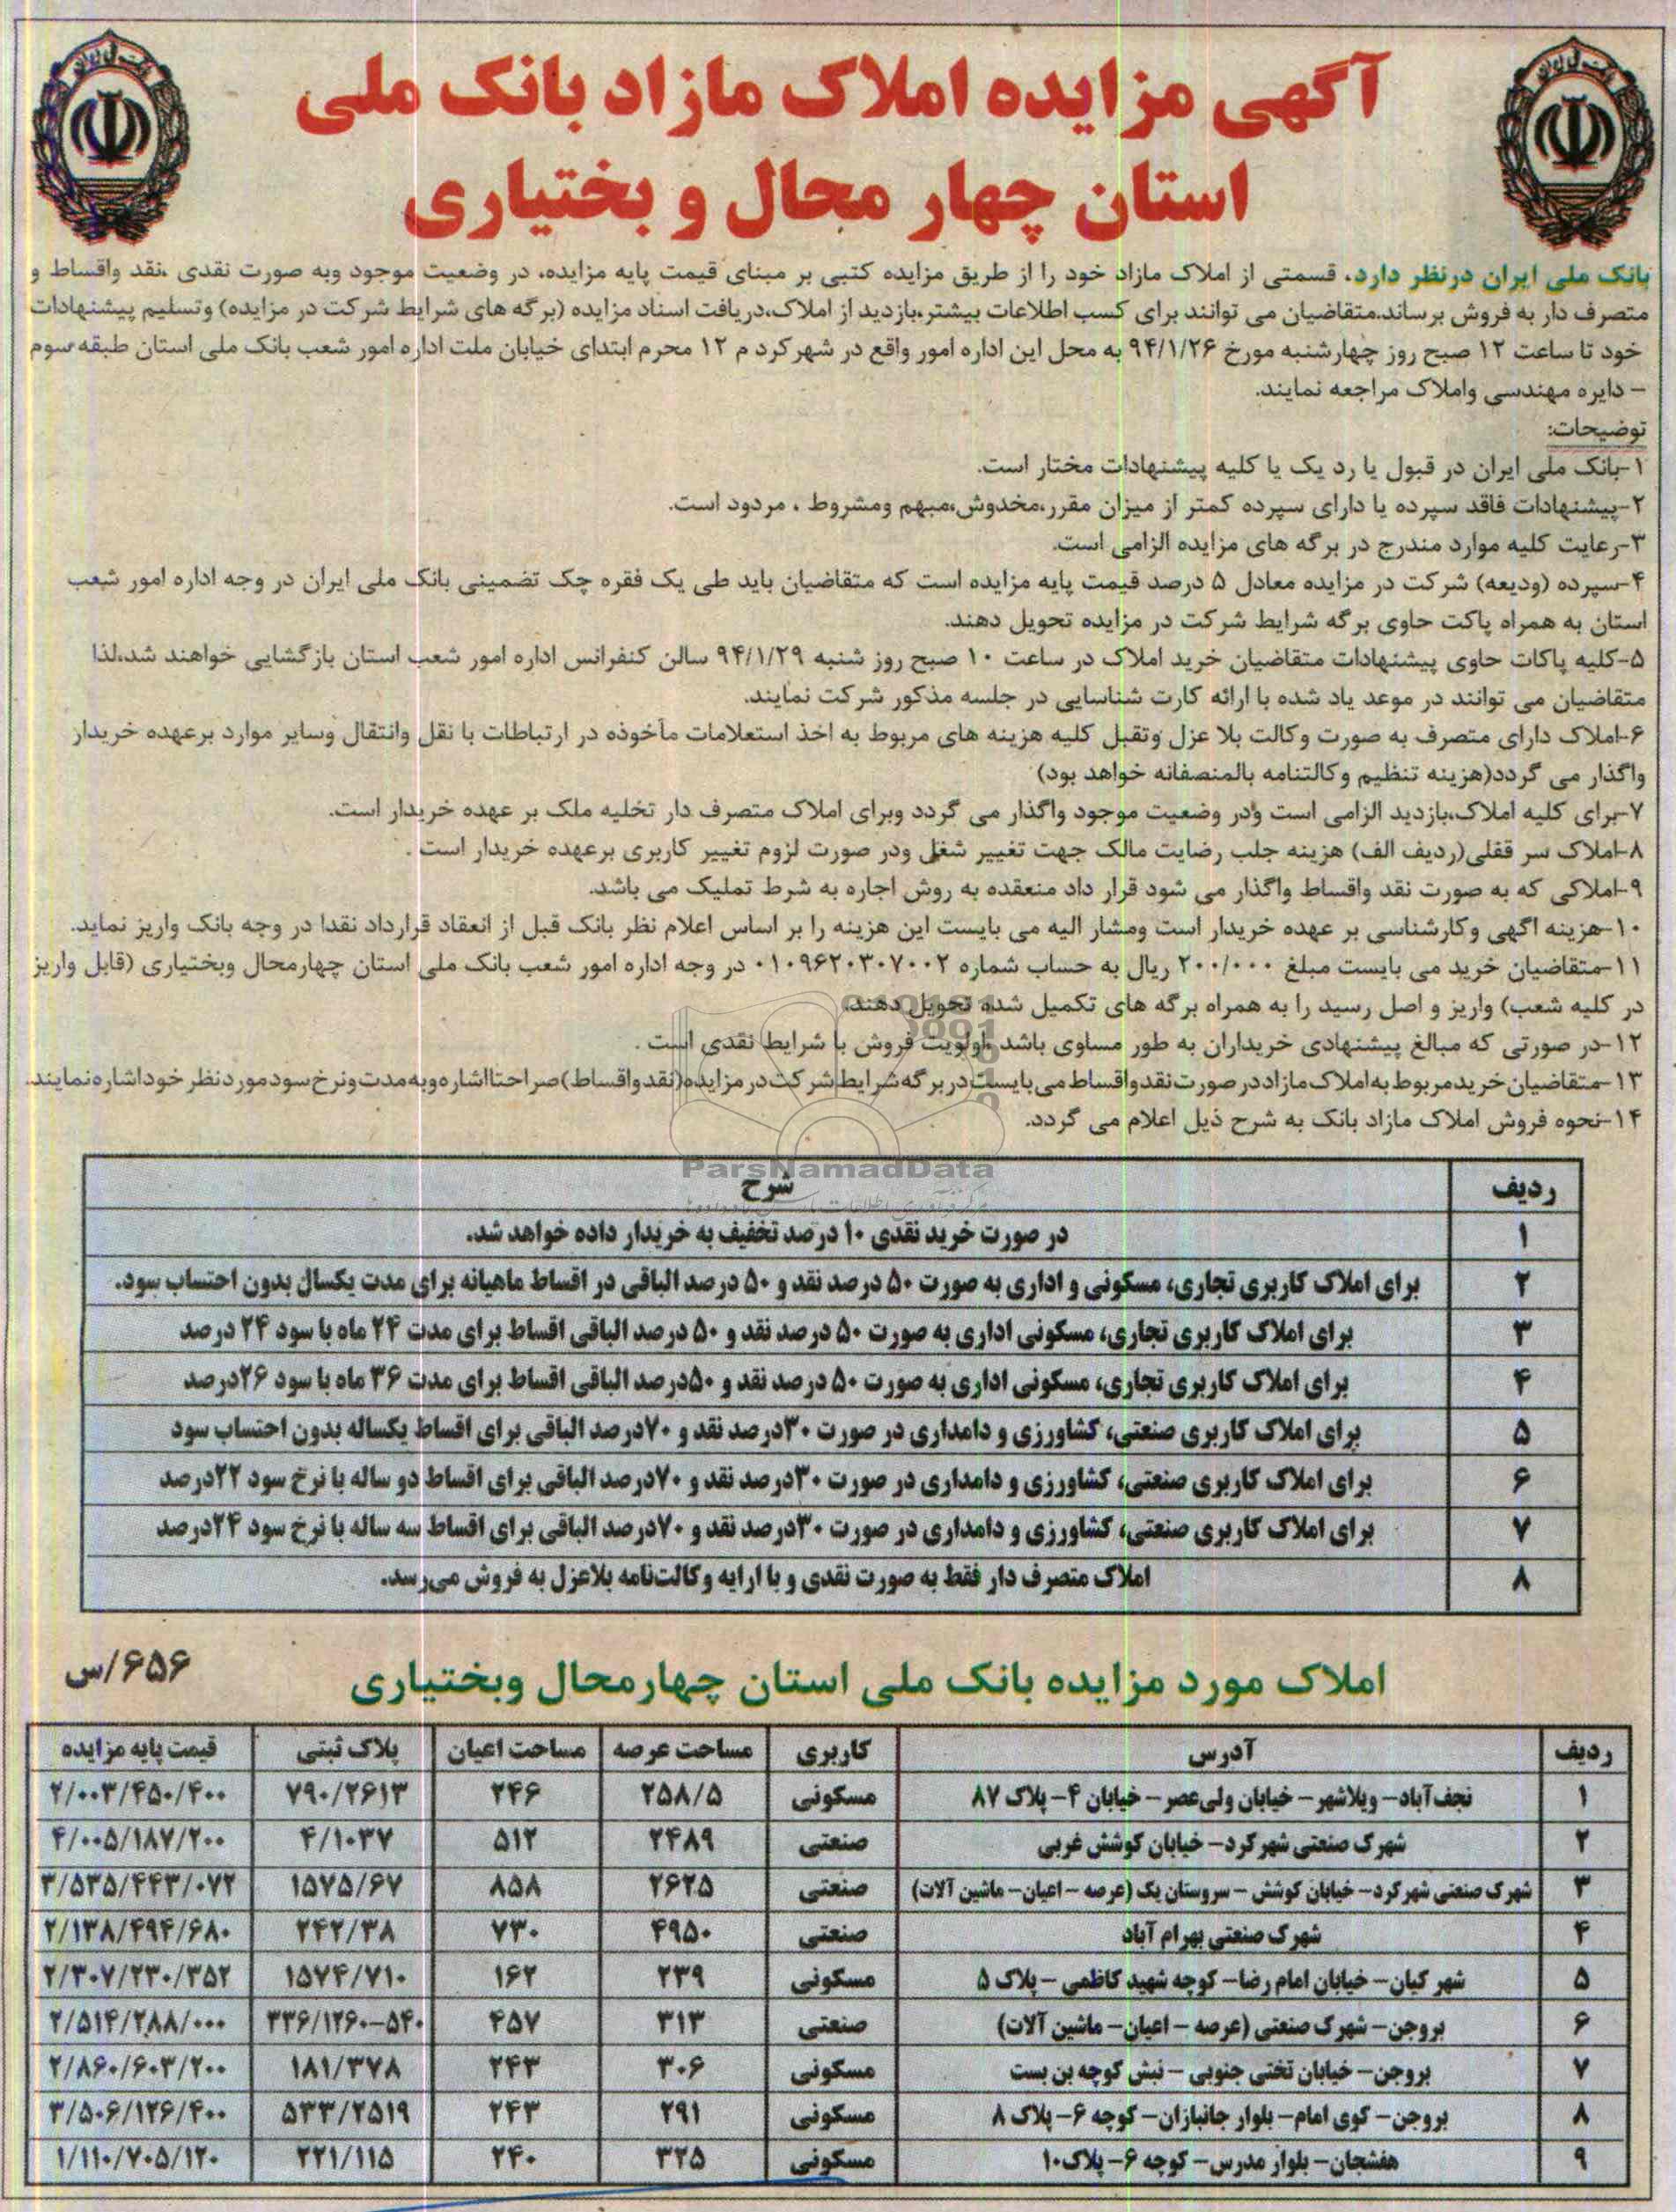 آگهی مزایده املاک مازاد بانک ملی
استان چهار محال و بختیاری
بانک ملی ایران درنظر دارد، قسمتی از املاک مازاد خود را از طریق مزایده کتبی بر مبنای قیمت پایه مزایده، در وضعیت موجود وبه صورت نقدی ،نقد واقساط و
متصرف دار به فروش برساند.متقاضیان می توانند برای کسب اطلاعات بیشتر،بازدید از املاک،دریافت اسناد مزایده (برگه های شرایط شرکت در مزایده) وتسلیم پیشنهادات
خود تا ساعت ۱۲ صبح روز چهارشنبه مورخ ۹۴/۱/۲۶ به محل این اداره امور واقع در شهرکرد م ۱۲ محرم ابتدای خیابان ملت اداره امور شعب بانک ملی استان طبقه سوم
– دایره مهندسی واملاک مراجعه نمایند.
توضیحات:
۱-بانک ملی ایران در قبول یا رد یک یا کلیه پیشنهادات مختار است.
۲-پیشنهادات فاقد سپرده یا دارای سپرده کمتر از میزان مقرر،مخدوش،مبهم ومشروط ، مردود است.
۳-رعایت کلیه موارد مندرج در برگه های مزایده الزامی است.
۴-سپرده (ودیعه) شرکت در مزایده معادل ۵ درصد قیمت پایه مزایده است که متقاضیان باید طی یک فقره چک تضمینی بانک ملی ایران در وجه اداره امور شعب
استان به همراه پاکت حاوی برگه شرایط شرکت در مزایده تحویل دهند.
۵-کلیه پاکات حاوی پیشنهادات متقاضیان خرید املاک در ساعت ۱۰ صبح روز شنبه ۹۴/۱/۲۹ سالن کنفرانس اداره امور شعب استان بازگشایی خواهند شد،لذا
متقاضیان می توانند در موعد یاد شده با ارائه کارت شناسایی در جلسه مذکور شرکت نمایند.
۶-املاک دارای متصرف به صورت وکالت بلا عزل وتقبل کلیه هزینه های مربوط به اخذ استعلامات مأخوذه در ارتباطات با نقل وانتقال وسایر موارد برعهده خریدار
واگذار می گردد(هزینه تنظیم وکالتنامه بالمنصفانه خواهد بود)
۷-برای کلیه املاک،بازدید الزامی است ودر وضعیت موجود واگذار می گردد وبرای املاک متصرف دار تخلیه ملک بر عهده خریدار است.
۸-املاک سر قفلی(ردیف الف) هزینه جلب رضایت مالک جهت تغییر شغل ودر صورت لزوم تغییر کاربری برعهده خریدار است .
۹-املاکی که به صورت نقد واقساط واگذار می شود قرار داد منعقده به روش اجاره به شرط تملیک می باشد.
۱۰-هزینه اگهی وکارشناسی بر عهده خریدار است ومشار الیه می بایست این هزینه را بر اساس اعلام نظر بانک قبل از انعقاد قرارداد نقدا در وجه بانک واریز نماید.
۱۱-متقاضیان خرید می بایست مبلغ ۲۰۰/۰۰۰ ریال به حساب شماره ۰۱۰۹۶۲۰۳۰۷۰۰۲ در وجه اداره امور شعب بانک ملی استان چهارمحال وبختیاری (قابل واریز
در کلیه شعب) واریز و اصل رسید را به همراه برگه های تکمیل شده تحویل دهند.
۱۲-در صورتی که مبالغ پیشنهادی خریداران به طور مساوی باشد ،اولویت فروش با شرایط نقدی است .
۱۳-متقاضیان خرید مربوط به املاک مازاد در صورت نقد واقساط می بایست در برگه شرایط شرکت در مزایده(نقد واقساط)صراحتا اشاره وبه مدت ونرخ سود مورد نظر خود اشاره نمایند.
۱۴-نحوه فروش املاک مازاد بانک به شرح ذیل اعلام می گردد.
ParsNamadData
ردیف شرح
۱ در صورت خرید نقدی ۱۰ درصد تخفیف به خریدار داده خواهد شد.
۲ برای املاک کاربری تجاری، مسکونی و اداری به صورت ۵۰ درصد نقد و ۵۰ درصد الباقی در اقساط ماهیانه برای مدت یکسال بدون احتساب سود.
۳ برای املاک کاربری تجاری، مسکونی اداری به صورت ۵۰ درصد نقد و ۵۰ درصد الباقی اقساط برای مدت ۲۴ ماه با سود ۲۴ درصد
۴ برای املاک کاربری تجاری، مسکونی اداری به صورت ۵۰ درصد نقد و ۵۰درصد الباقی اقساط برای مدت ۳۶ ماه با سود ۲۶درصد
۵ برای املاک کاربری صنعتی، کشاورزی و دامداری در صورت ۳۰درصد نقد و ۷۰درصد الباقی برای اقساط یکساله بدون احتساب سود
۶ برای املاک کاربری صنعتی، کشاورزی و دامداری در صورت ۳۰درصد نقد و ۷۰درصد الباقی برای اقساط دو ساله با نرخ سود ۲۲درصد
۷ برای املاک کاربری صنعتی، کشاورزی و دامداری در صورت ۳۰درصد نقد و ۷۰درصد الباقی برای اقساط سه ساله با نرخ سود ۲۴درصد
۸ املاک متصرف دار فقط به صورت نقدی و با ارایه وکالت‌نامه بلاعزل به فروش می‌رسد.
املاک مورد مزایده بانک ملی استان چهارمحال وبختیاری
۶۵۶/س
ردیف آدرس کاربری مساحت عرصه مساحت اعیان پلاک ثبتی قیمت پایه مزایده
۱ نجف‌آباد– ویلاشهر– خیابان ولی‌عصر– خیابان ۴– پلاک ۸۷ مسکونی ۲۵۸/۵ ۲۴۶ ۷۹۰/۲۶۱۳ ۲/۰۰۳/۴۵۰/۴۰۰
۲ شهرک صنعتی شهرکرد– خیابان کوشش غربی صنعتی ۲۴۸۹ ۵۱۲ ۴/۱۰۳۷ ۴/۰۰۵/۱۸۷/۲۰۰
۳ شهرک صنعتی شهرکرد– خیابان کوشش – سروستان یک (عرصه – اعیان– ماشین آلات) صنعتی ۲۶۲۵ ۸۵۸ ۱۵۷۵/۶۷ ۳/۵۳۵/۴۴۳/۰۷۲
۴ شهرک صنعتی بهرام آباد صنعتی ۴۹۵۰ ۷۳۰ ۲۴۲/۳۸ ۲/۱۳۸/۴۹۴/۶۸۰
۵ شهرکیان– خیابان امام رضا– کوچه شهید کاظمی – پلاک ۵ مسکونی ۲۳۹ ۱۶۲ ۱۵۷۴/۷۱۰ ۲/۳۰۷/۲۳۰/۳۵۲
۶ بروجن– شهرک صنعتی (عرصه – اعیان– ماشین آلات) صنعتی ۳۱۳ ۴۵۷ ۳۳۶/۱۲۶۰–۵۴۰ ۲/۵۱۴/۲۸۸/۰۰۰
۷ بروجن– خیابان تختی جنوبی – نبش کوچه بن بست مسکونی ۳۰۶ ۲۴۳ ۱۸۱/۳۷۸ ۲/۸۶۰/۶۰۳/۲۰۰
۸ بروجن– کوی امام– بلوار جانبازان– کوچه ۶– پلاک ۸ مسکونی ۲۹۱ ۲۴۳ ۵۳۳/۲۵۱۹ ۳/۵۰۶/۱۲۶/۴۰۰
۹ هفشجان– بلوار مدرس– کوچه ۶– پلاک۱۰ مسکونی ۳۲۵ ۲۴۰ ۲۲۱/۱۱۵ ۱/۱۱۰/۷۰۵/۱۲۰